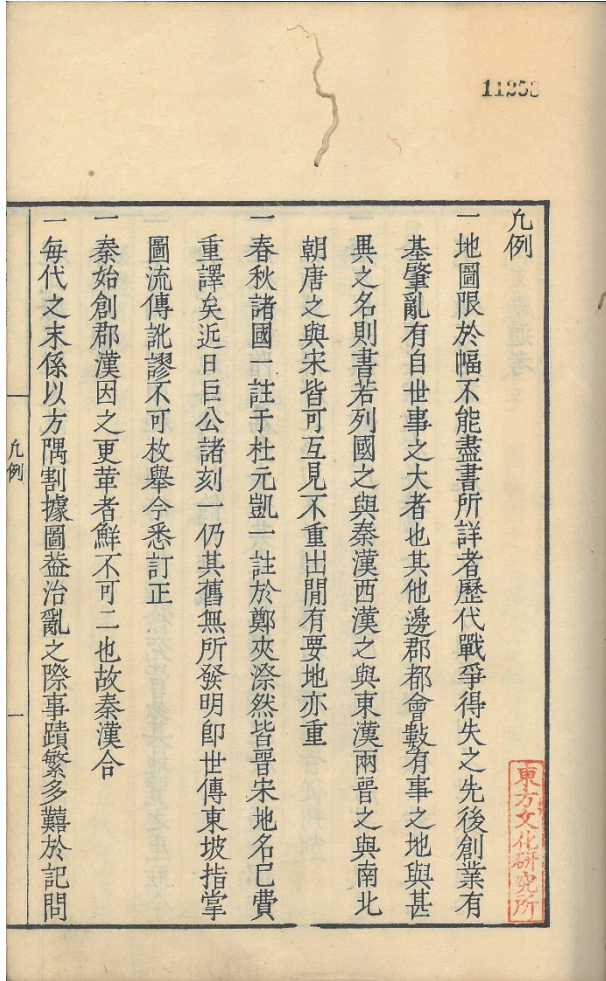 11258
凡例
一地圖限於幅不能盡書所詳者歷代戰爭得失之先後創業有
基肇亂有自世事之大者也其他邊郡都會數有事之地與甚
異之名則書若列國之與秦漢西漢之與東漢兩晉之與南北
朝唐之與宋皆可互見不重出閒有要地亦重
一春秋諸國一註于杜元凱一註於鄭夾漈然皆晉宋地名已費
重譯矣近日巨公諸刻一仍其舊無所發明卽世傳東坡指掌
圖流傳訛謬不可枚舉今悉訂正
一秦始創郡漢因之更革者鮮不可二也故秦漢合
一每代之末係以方隅割據圖葢治亂之際事蹟繁多囏於記問
凡例
一
東方文化研究所